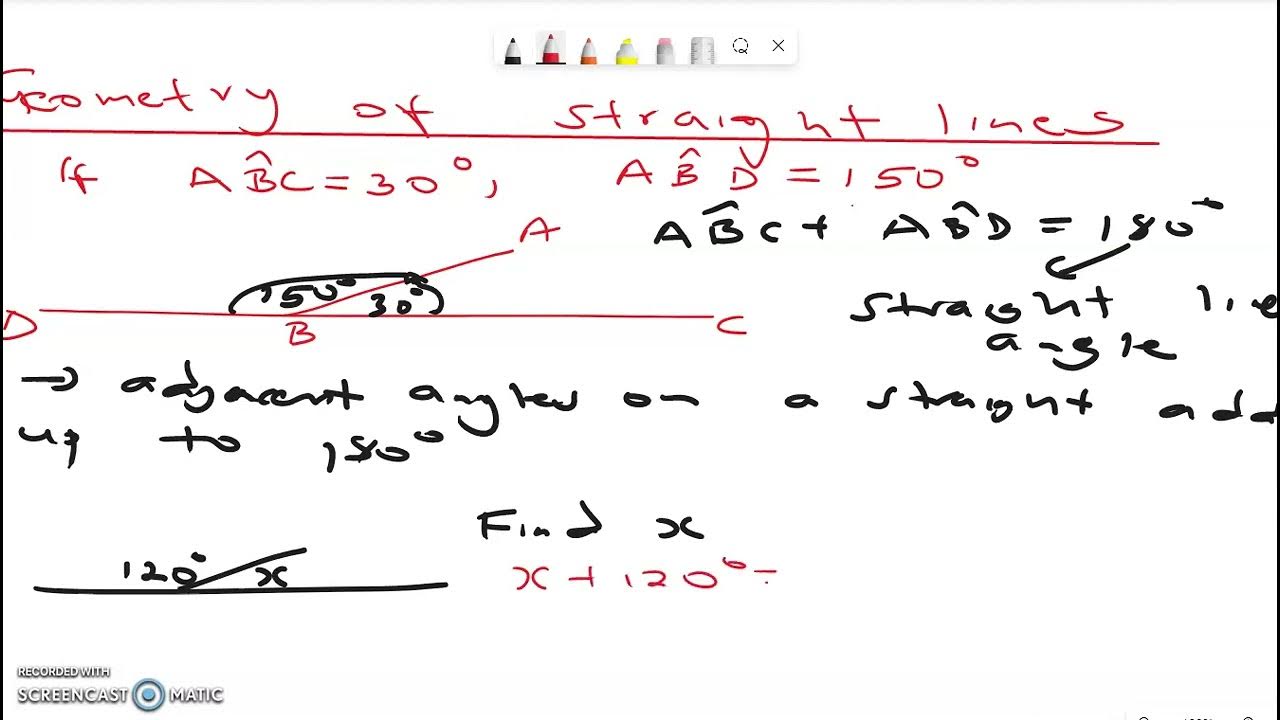 Geometry of straight lines
If AB̂C = 30°, AB̂D = 150°
AB̂C + AB̂D = 180°
A
150° 30°
D B C
straght line
angle
→ adjacent angles on a straight add
up to 180°
Find x
120° x
x + 120° =
RECORDED WITH
SCREENCAST MATIC